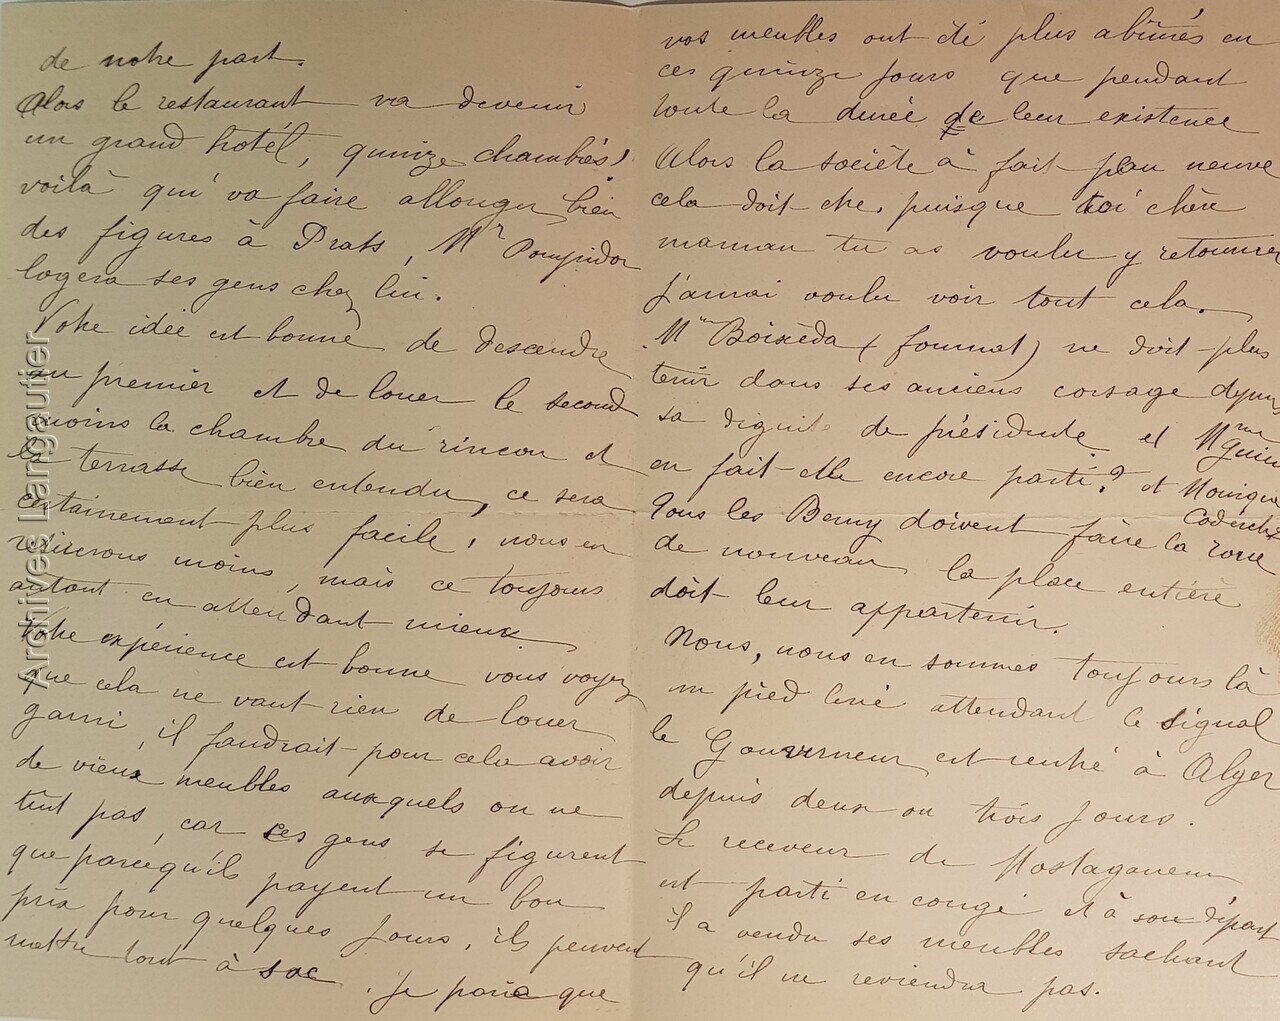 de notre part.
Alors le restaurant va devenir
un grand hotêl, quinze chambres,
voilà qui va faire allonger bien
des figures à Prats, Mr Pompidor
logera ses gens chez lui.
Votre idée est bonne de descendre
au premier et de louer le second
moins la chambre du rincon et
la terrasse bien entendu, ce sera
certainement plus facile, nous en
retirerons moins, mais ce toujours
autant en attendant mieux.
Votre expérience est bonne vous voyez
que cela ne vaut rien de louer
garni, il faudrait pour cela avoir
de vieux meubles auxquels on ne
tînt pas, car ces gens se figurent
que parcequ'ils payent un bon
prix pour quelques jours, ils peuvent
mettre tout à sac. Je parie que
vos meubles ont été plus abîmés en
ces quinze jours que pendant
toute la durée de leur existence
Alors la sociéte à fait peau neuve
cela doit être, puisque toi chère
maman tu as voulu y retourner
J'aurai voulu voir tout cela.
Mme Boixéda (fournat) ne doit plus
tenir dans ses anciens corsage depuis
sa dignité de présidente et Mme
en fait-elle encore parti? et Monique
Coderch
Tous les Berny doivent faire la roue
de nouveau la place entière
doit leur appartenir.
Nous, nous en sommes toujours là
un pied levé attendant le signal
le Gouverneur est rentré à Alger
depuis deux ou trois jours.
Le receveur de Mostaganem
est parti en congé et à son départ
il a vendu ses meubles sachant
qu'il ne reviendra pas.
Archives Langautier